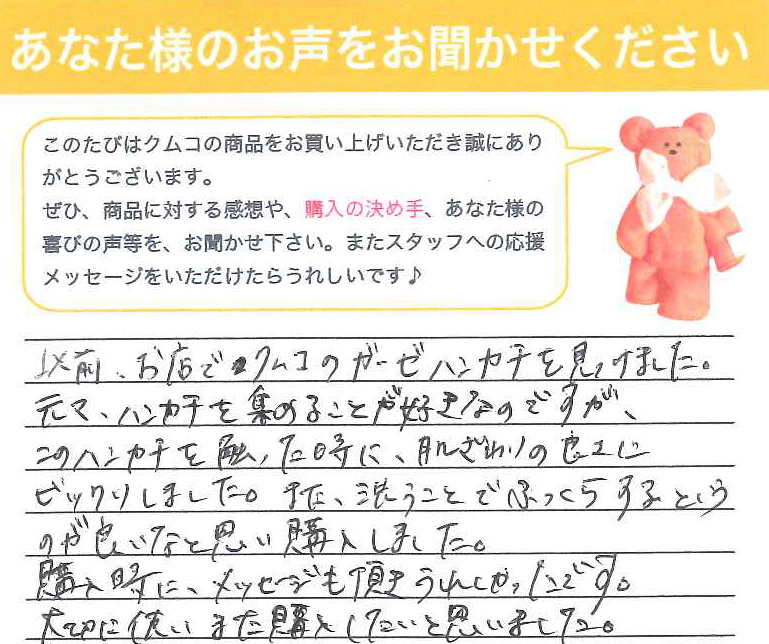 あなた様のお声をお聞かせください
このたびはクムコの商品をお買い上げいただき誠にあり
がとうございます。
ぜひ、商品に対する感想や、購入の決め手、あなた様の
喜びの声等を、お聞かせ下さい。またスタッフへの応援
メッセージをいただけたらうれしいです♪
以前、お店でクムコのガーゼハンカチを見つけました。
元々、ハンカチを集めることが好きなのですが、
このハンカチを触った時に、肌ざわりの良さに
ビックリしました。また、洗うことでふっくらするという
のが良いなと思い購入しました。
購入時に、メッセージも頂きうれしかったです。
大切に使いまた購入したいと思いました。